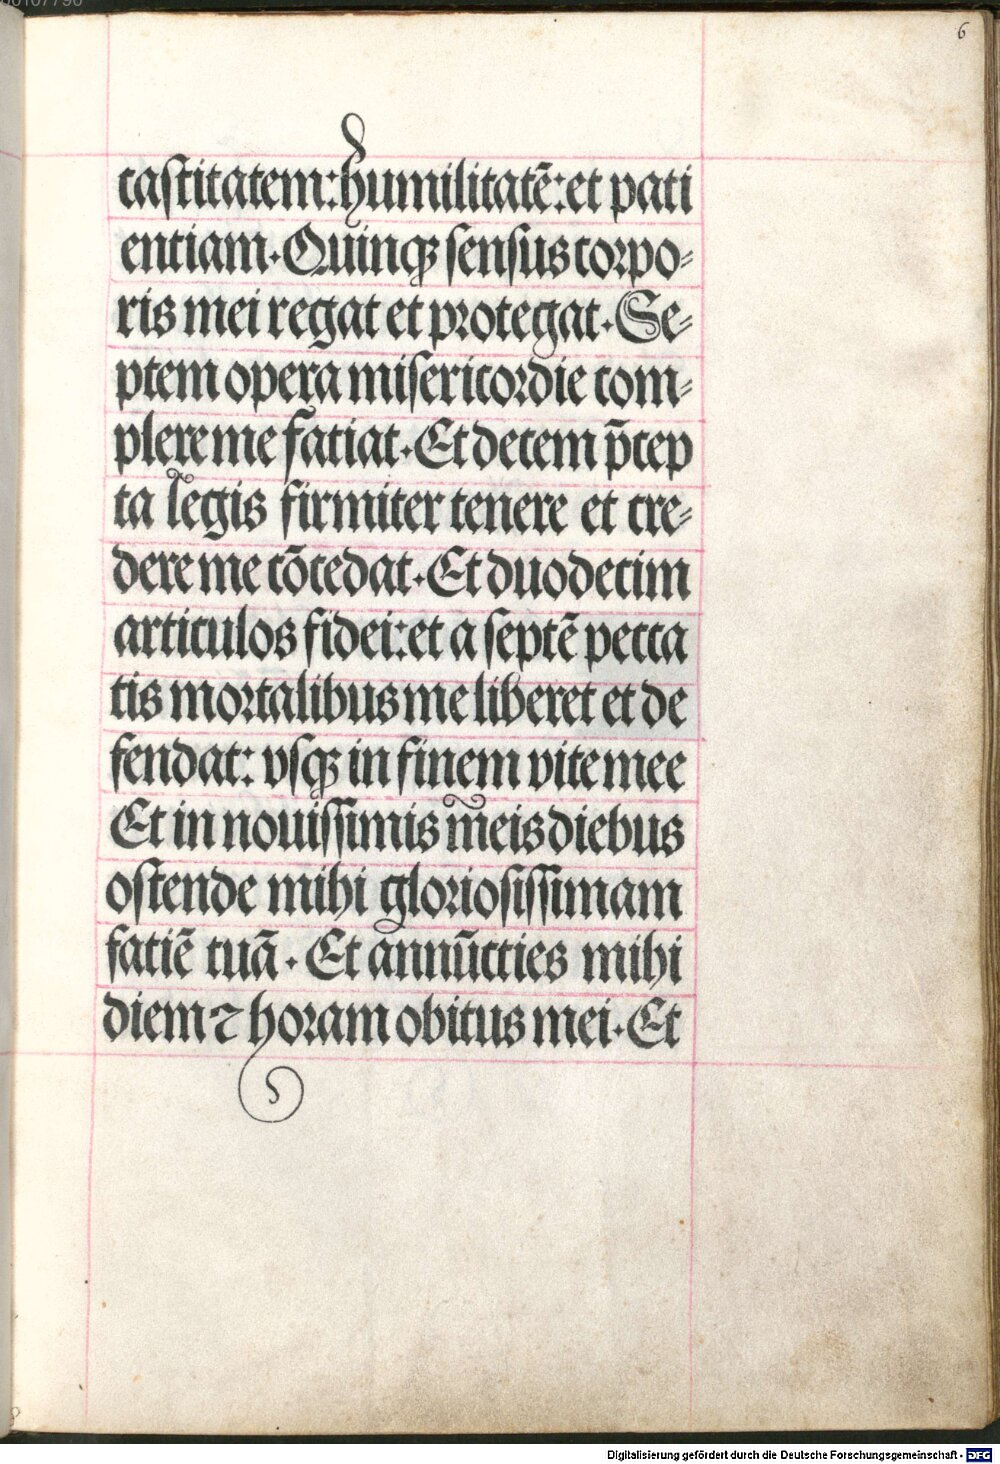 00107790
6
castitatem: humilitatē: et pati
entiam. Quinqꝫ sensus corpo-
ris mei regat et protegat. Se-
ptem opera misericordie com-
plere me faciat. Et decem p̄cep
ta legis firmiter tenere et cre-
dere me cōcedat. Et duodecim
articulos fidei: et a septē pecca
tis mortalibus me liberet et de
fendat: vsqꝫ in finem vite mee
Et in nouissimis meis diebus
ostende mihi gloriosissimam
faciē tuā. Et annūccies mihi
diem ⁊ horam obitus mei. Et
Digitalisierung gefördert durch die Deutsche Forschungsgemeinschaft - DFG